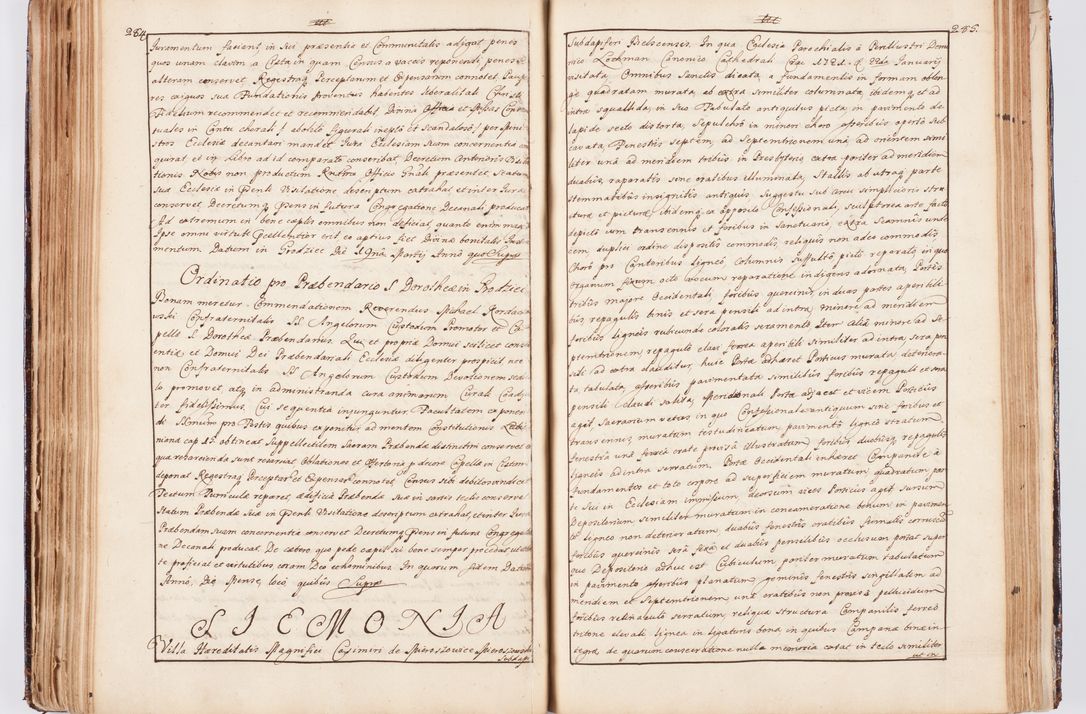 284.
Juramentum facient, in sui præsentia et Communitatis adigat penes
quos unam clavim a Cista in quam Census a vaccis reponendi, penes se
alteram conservet, Regestraq Perceptarum et Expensarum connotet, Paupe
res eaiquos sua Fundationis Proventus habentes liberalitati
recommendet et recommendabit, Divina Officia et Missas Conven
tuales in Cantu chorali /: abolito figurali inepto et scandaloso :/ per Mini
stros Ecclesiæ decantari mandet, Jura Ecclesiam suam concernentia con
quirat et in Libro ad id comparato conscribat, Decretum Anterioris Visita
tionis Nobis non productum Nostro Officio præsentet, Statum
suæ Ecclesiæ in Visitatione descriptum extrahat et inter Jura
conservet, Decretumq Præsens in futura Congregatione Decanali producat
Id extremum in bene cæptis omnibus non deficiat, quanto enim in
Ipse omni virtute excellentior erit eo aptius fiet Divinæ bonitatis
mentum. Datum in Grodziec Die Martij Anno quo Supra
Ordinatio pro Præbendario S. Dorotheæ in Grodziec
Bonam meretur Commendationem Reverendus Michael
Confraternitatis SS. Angelorum Custodum Promotor et Ca
pellæ S. Dorotheæ Præbendarius. Qui et propriæ Domui scilicet consci
entiæ et Domui Dei Præbendariali Ecclesiæ diligenter prospicit nec
non Confraternitatis SS. Angelorum Custodum Devotionem sedu
lo promovet, atq in administranda cura animarum Curati Coadju
tor fidelissimus. Cui sequentia injunguntur. Facultatem exponen
di SSmum pro Festis quibus exponitur ad mentem Constitutionis
cap 15. obtineat Suppellectilem Sacram Præbendæ distinctim conservet et
quæ reharcienda sunt resarciat Oblationes et Offertoria p decore Capellæ in Cistam
deponat Regestraq Perceptar et Expensar connotet, Census sibi debitos vindicet
Tectum Turriculæ reparet, ædificia Præbendæ suæ in sartis tectis conservet
Statum Præbendæ suæ in Visitatione descriptum extrahat, et inter Jura
Præbendam suam concernentia conservet Decretumq Præsens in futura Congregatio
ne Decanali producat. De cætero quo pede cæpit sic bene semper procedat, ut
te proficiat et virtutibus, coram Deo et hominibus. In quorum fidem Datum
Anno, Die Mense, loco quibus Supra
SIEMONIA
Villa Hæreditatis Magnifici Casimiri de Mieroszowice Mieroszowski
Subdapi
285.
Subdapiferi Bielscensis. In qua Ecclesia Parochialis a Perillustri Domi
nico Lochman Canonico Cathedrali 1721. d 22da Januarij
visitata, Omnibus Sanctis dicata, a fundamentis in formam oblon
gæ quadratam murata, ab extra similiter columnata, ibidemq et ad
intra squallida, in suo Tabulato antiquitus picta, in pavimento de
lapide secto distorta, Sepulchro in minori choro asseribus aperto sub
cavata, Fenestris septem, ad Septemtrionem una, ad orientem simi
liter una ad meridiem tribus, in Presbyterio extra pariter ad meridiem
duabus, reparatis sine cratibus illuminata, Stallis ab utraq parte
stemmatibus insignitis antiquis. Suggestu sub arcu simplicioris stru
cturæ et picturæ ibidemq ex opposito Confessionali, sculptorea arte facto
depicto cum transennis et foribus in Sanctuario extra Scamnis unde
cem duplici ordine dispositis commodis, reliquis non adeo commodis,
Choro pro Cantoribus ligneo, columnis suffulto picto reparato, in quo
Organum fixum octo vocum reparatione indigens adornata, Portis
tribus majore Occidentali foribus quercinis, in duas partes aperibili
bus, repagulis binis et sera pensili ad intra, minore ad meridiem
foribus ligneis rubicundo coloratis seramento. Item alia minore ad Se
ptemtrionem, repagulo clavi ferrea aperibili similiter ad intra, sera pen
sili ad extra clauditur, huic Portæ adhæret Porticus murata deteriora
ta, tabulata, asseribus pavimentata, similibus foribus repagulo et sera
pensili claudi solita, Meridionali Portæ adjacet et vicem Porticus
agit Sacrarium vetus in quo Confessionale antiquum sine foribus et
transennis, muratum testudineatum, pavimento ligneo stratum,
fenestra una ferrea crate provisa illustratum, foribus duabus, repagulis
ligneis ad intra serratum. Portæ Occidentali inhæret Campanile à
fundamentis et toto corpore ad superficiem muratum quadratum par
te sui in Ecclesiam immissum, deorsum vices Porticus agit, sursum
Depositorium similiter muratum in concameratione bonum in pavimen
to ligneo non deterioratum, duabus fenestris cratibus firmatis
foribus quercinis sera fixa et duabus pensilibus occlusum, portat super
quo Depositorio adhuc est Cubiculum pariter muratum tabulatum
in pavimento asseribus planatum, geminis fenestris singillatim ad
meridiem et Septemtrionem una cratibus non provisis pellucidum
foribus retinaculo serratum, reliqua structura Campanilis ferreo
elevati, lignea in ligaturis bona, in quibus Campanæ binæ in
tegræ de quarum consecratione nulla memoria extat, in tecto similiter
ut in